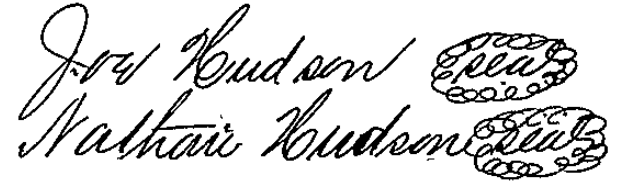 Joe Hudson seal
Nathan Hudson seal